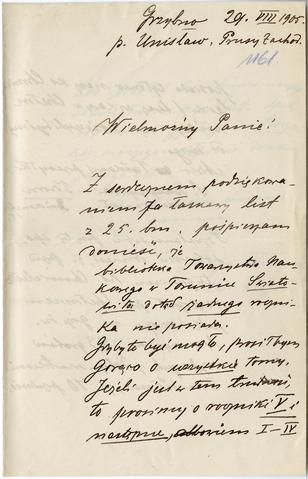 Grzybno 29. VIII. 1905.
p. Unisław, Prusy Zachod.
1161
Wielmożny Panie!
Z serdecznem podziękowa-
niem za łaskawy list
z 25. bm. pośpieszam
donieść, że
biblioteka Towarzystwa Nau-
kowego w Toruniu Świato-
wita dotąd żadnego roczni-
ka nie posiada.
Gdyby to być mogło, prosiłbym
gorąco o wszystkie tomy.
Jeżeli jest w tem trudność,
to prosimy o roczniki V i
następne, albowiem I–IV